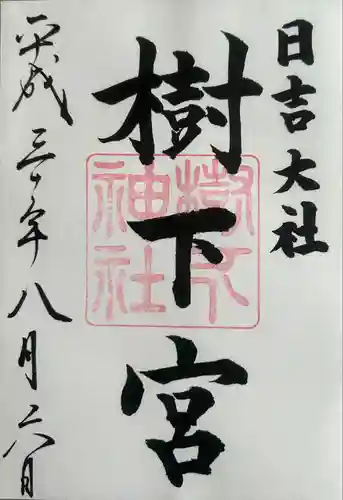 日吉大社
樹下宮
樹下
神社
平成三十年八月六日